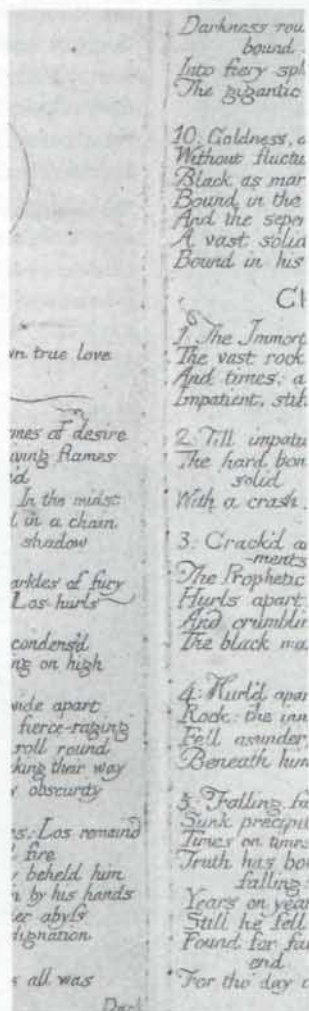 wn true love
mes of desire
iving flames
id
In the midst
l in a chain
shadow
arkles of fury
Los hurls
condens'd
ng on high
wide apart
fierce-raging
roll round
king their way
y obscurity
es: Los remaind
fire
beheld him
n by his hands
er abyss
dignation
s all was
Dark
Darkness rou
bound
Into fiery sph
The gigantic
10: Coldness, d
Without fluctu
Black as mar
Bound in the
And the seper
A vast solid
Bound in his
Ch
1: The Immort
The vast rock
And times; a
Impatient, stif
2: Till impatie
The hard bon
solid
With a crash
3: Crack'd a
-ments
The Prophetic
Hurls apart
And crumblin
The black ma
4: Hurl'd apar
Rock: the inn
Fell asunder,
Beneath him
5: Falling, fa
Sunk precipit
Times on times
Truth has bou
falling:
Years on year
Still he fell
Found for fal
end.
For tho' day o